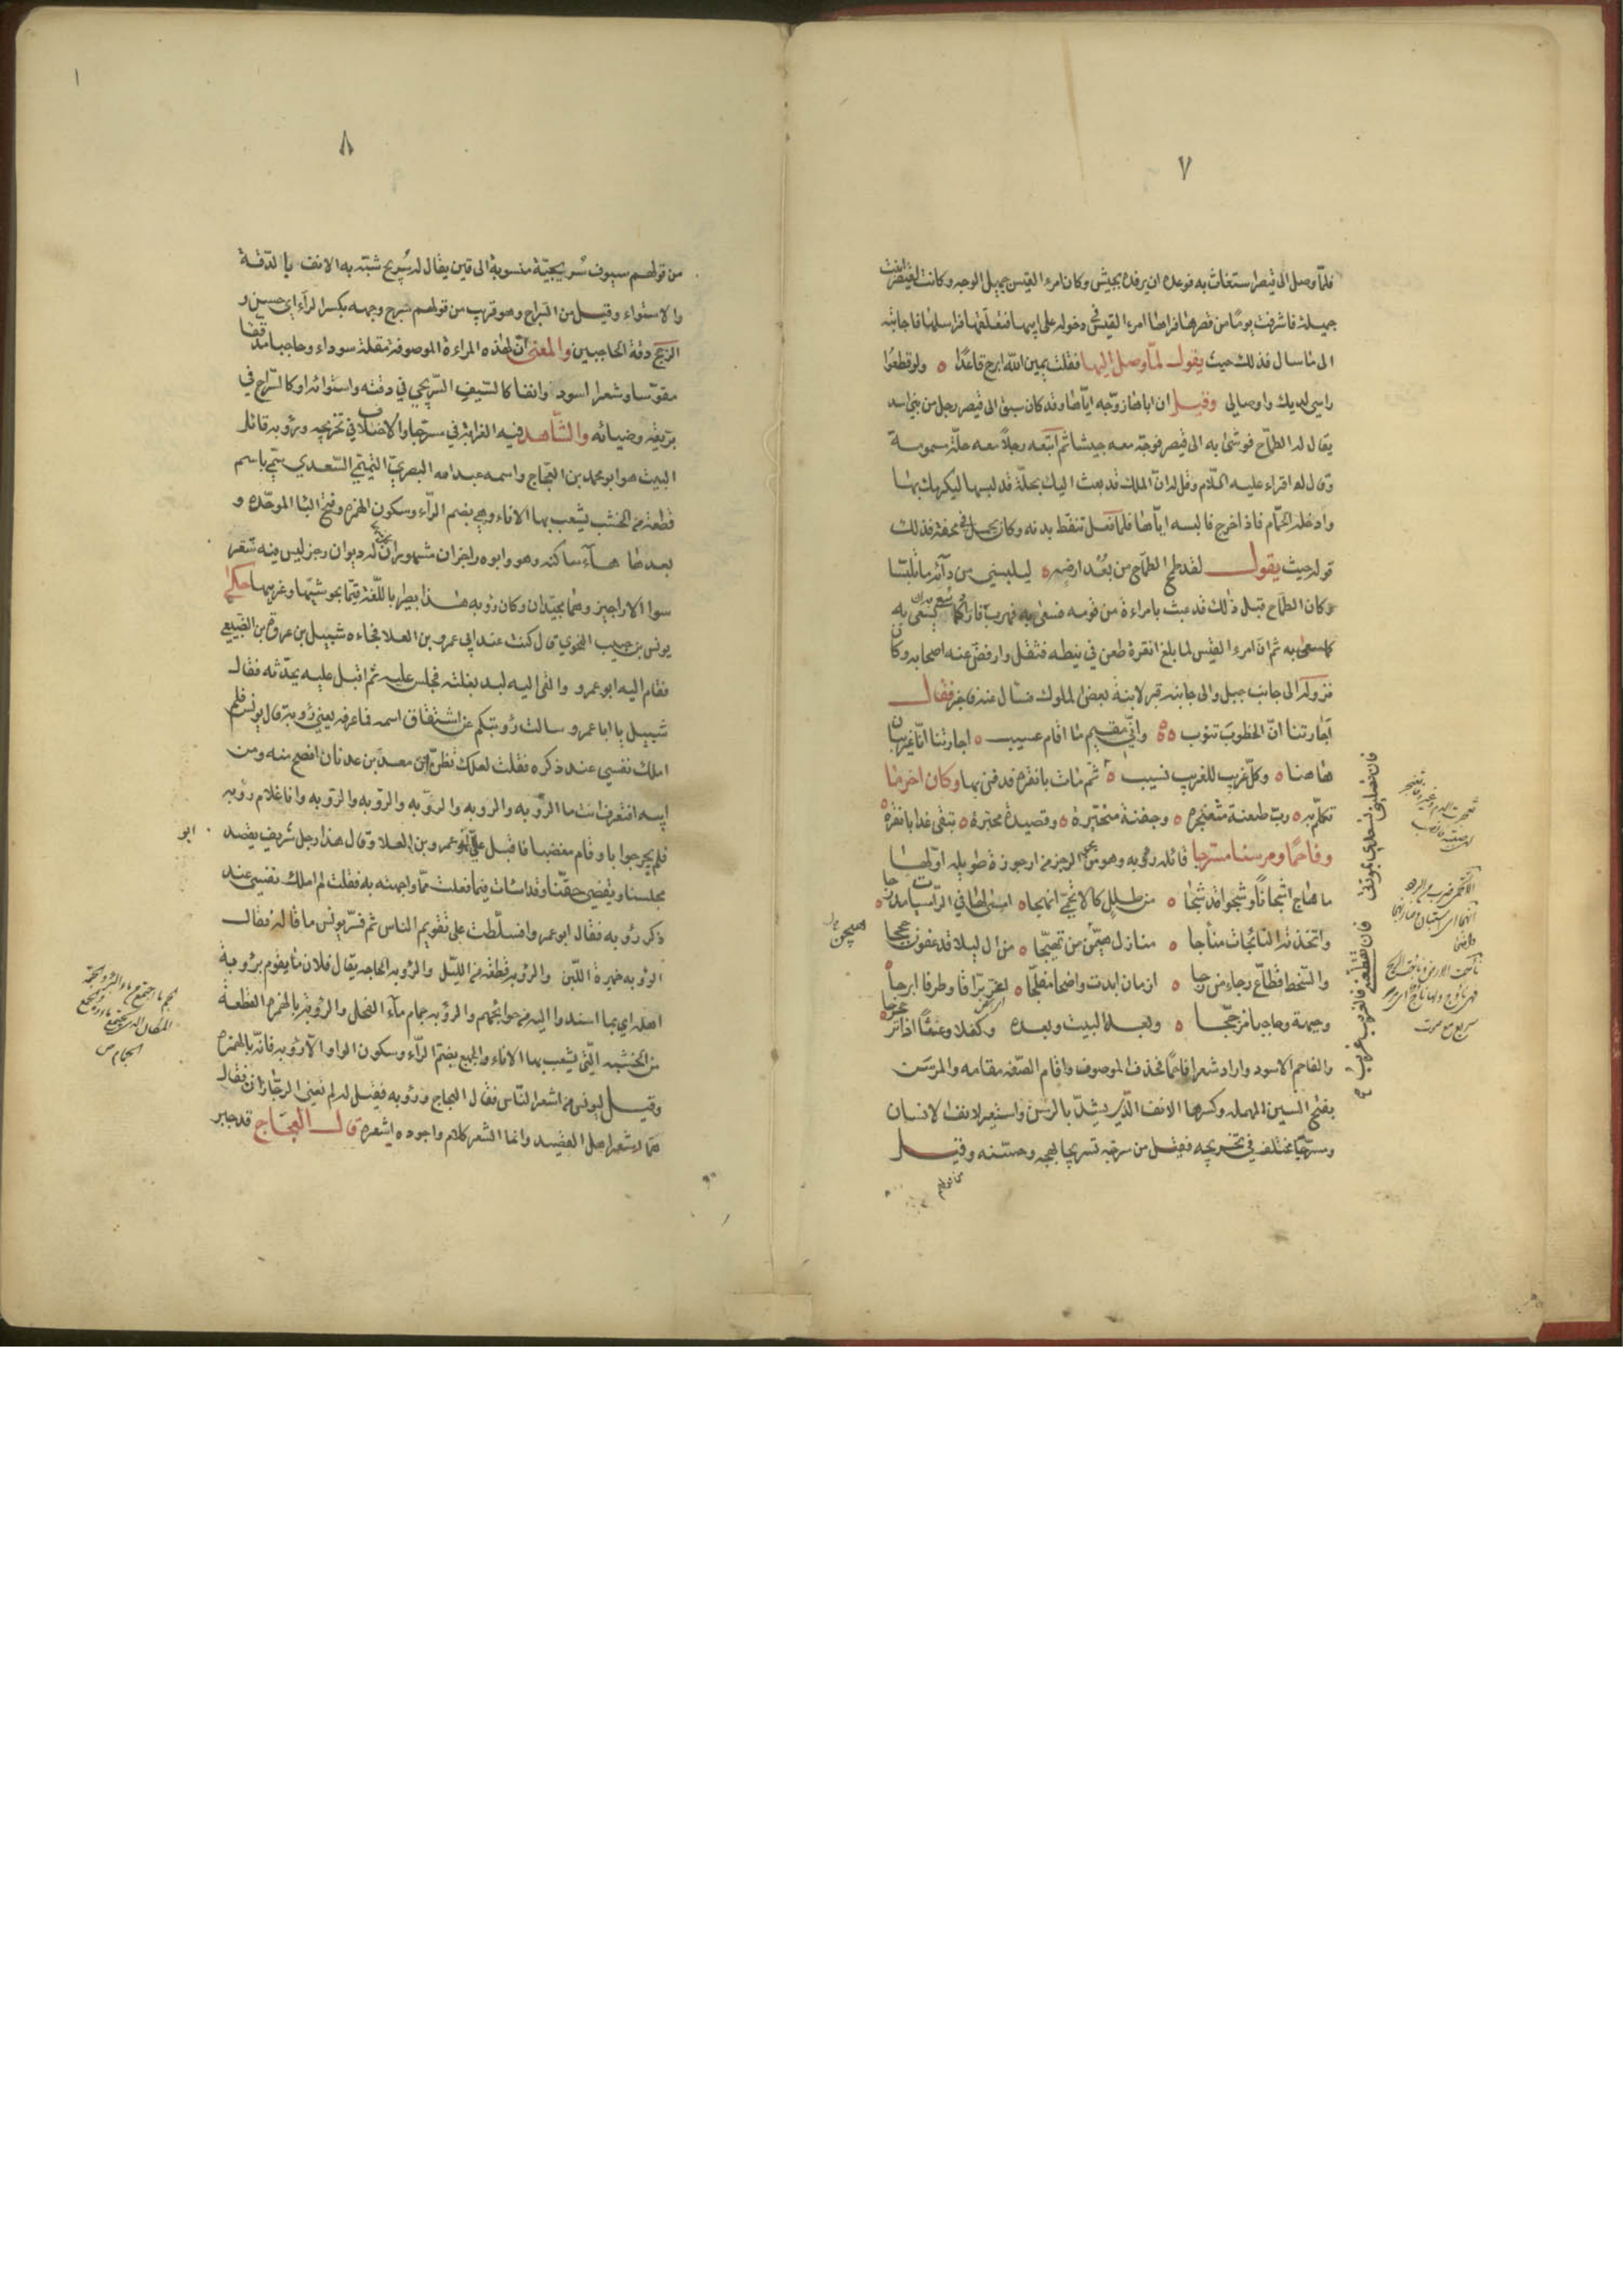 ٧
فلما وصل الى قيصر استغاث به فوعده ان يرفده بجيش وكان امرء القيس جميل الوجه وكانت لقيصر ابنة
جميلة فاشرفت يوما من قصرها فراها امرء القيس في دخوله على ابيها فتعلقها فراسلها فاجابته
الى ما سال فذلك حيث يقول لما وصل اليها فقلت يمين الله ابرح قاعدا ه ولو قطعوا
راسي لديك واوصالي وقيل ان اباها زوجه اياها وقد كان سبق الى قيصر رجل من بني اسد
يقال له الطماح فوشى به الى قيصر فوجه معه جيشا ثم اتبعه رجلا معه حلة مسمومة
وقال له اقراء عليه السلام وقل له ان الملك قد بعث اليك بحلة قد لبسها ليكرمك بها
وادخله الحمام فاذا خرج فالبسه اياها فلما فعل تنقط بدنه وكان يحمل في محفة فذلك
قوله حيث يقول لقد طمح الطماح من بعد ارضه ه ليلبسني من دآئه ما تلبسا
وكان الطماح قبل ذلك قد عبث بامراءة من قومه فسعى به فهرب
كما سعى به ثم ان امرء القيس لما بلغ انقرة طعن في نيطه فثقل وارفض عنه اصحابه وكان
نزوله الى جانب جبل والى جانبه قبر لابنة بعض الملوك فسال عنه فاخبر فقال
اجارتنا ان الخطوب تنوب ه ه واني مقيم ما اقام عسيب ه اجارتنا انا غريبان
هاهنا ه وكل غريب للغريب نسيب ه ثم مات بانقره فدفن بها وكان اخر ما
تكلم به ه رب طعنة مثعنجره ه وجفنة متحيرة ه وقصيدة محبرة ه تبقى غدا بانقرة
وفاحما ومرسنا مسرجا قائله رؤبه وهو من الرجز من ارجوزة طويله اولها
ما هاج اشجانا وشجوا قد شجا ه من طلل كالاتحمي انهجا ه امسى لعافي الرامسات مدرجا ه
واتخذته النائجات منأجا ه منازل هيجن من تهيجا ه من ال ليلى قد عفون حججا
والسخط قطاع رجاء من رجا ه ازمان ابدت واضحا مفلجا ه اغر براقا وطرفا ابرجا ه
وجبهة وحاجبا مزججا ه وبعده البيت وبعده وكفلا وعثا اذا ترجرجا
والفاحم الاسود واراد شعرا فاحما فحذف الموصوف واقام الصفة مقامه والمرسن
بفتح السين المهمله وكسرها الانف الذي يشد بالرسن واستعير لانف الانسان
ومسرجا مختلف في تخريجه فقيل من سرجه تسريجا بهجه وحسنه وقيل
من قولهم
هيجن
فان تصليني تسعدي بمودتي فان تقطعيني فالغريب غريب
٨
من قولهم سيوف سريجية منسوبة الى قين يقال له سريج شبه به الانف بالدقة
والاستواء وقيل من السراج وهو قريب من قولهم سرج وجهه بكسر الراء اي حسن و
الزجج دقة الحاجبين والمعنى ان لهذه المراءة الموصوفة مقلة سوداء وحاجبا مدققا
مقوسا وشعرا اسود وانفا كالسيف السريجي في دقته واستوائه او كالسراج في
بريقه وضيائه والشاهد فيه الغرابة في مسرجا والاختلاف في تخريجه ورؤبه قائل
البيت هو ابو محمد بن العجاج واسمه عبد الله البصري التميمي السعدي سمي باسم
قطعة من الخشب يشعب بها الاناء وهي بضم الرآء وسكون الهمزه وفتح البا الموحده و
بعدها هآء ساكنه وهو وابوه راجزان مشهوران كل له ديوان رجز ليس فيه شعر
سوا الاراجيز وهما مجيدان وكان رؤبه هذا بصيرا باللغة قيما بحوشيها وغريبها حكى
يونس بن حبيب النحوي قال كنت عند ابي عمرو بن العلا فجاءه شبيل بن عروة الضبيعي
فقام اليه ابو عمرو والقى اليه لبد بغلته فجلس عليه ثم اقبل عليه يحدثه فقال
شبيل يا ابا عمرو سالت رؤبتكم عن اشتقاق اسمه فما عرفه يعني رؤبة قال يونس فلم
املك نفسي عند ذكره فقلت لعلك تظن ان معد بن عدنان افصح منه ومن
ابيه افتعرف انت ما الروبه والروبه والروبه والروبه والرؤبه وانا غلام رؤبه
فلم يحر جوابا وقام مغضبا فاقبل علي ابو عمرو بن العلا وقال هذا رجل شريف يقصد
مجلسنا ويقضي حقنا وقد اسات فيما فعلت مما واجهته به فقلت لم املك نفسي عند
ذكر رؤبه فقال ابو عمرو او سلطت على تقويم الناس ثم فسر يونس ما قاله فقال
الروبه خميرة اللبن والروبة قطعة من الليل والروبه الحاجه يقال فلان ما يقوم بروبة
اهله اي بما اسندوا اليه من حوائجهم والروبه جمام مآء الفحل والرؤبة بالهمزه القطعة
من الخشبه التي يشعب بها الاناء والجميع بضم الرآء وسكون الواو الا رؤبه فانه بالهمزه
وقيل ليونس من اشعر الناس فقال العجاج ورؤبه فقيل له لم نعني الرجاز فقال
هما اشعر اهل القصيد وانما الشعر كلام واجوده اشعره قال العجاج قد جبر
ابو